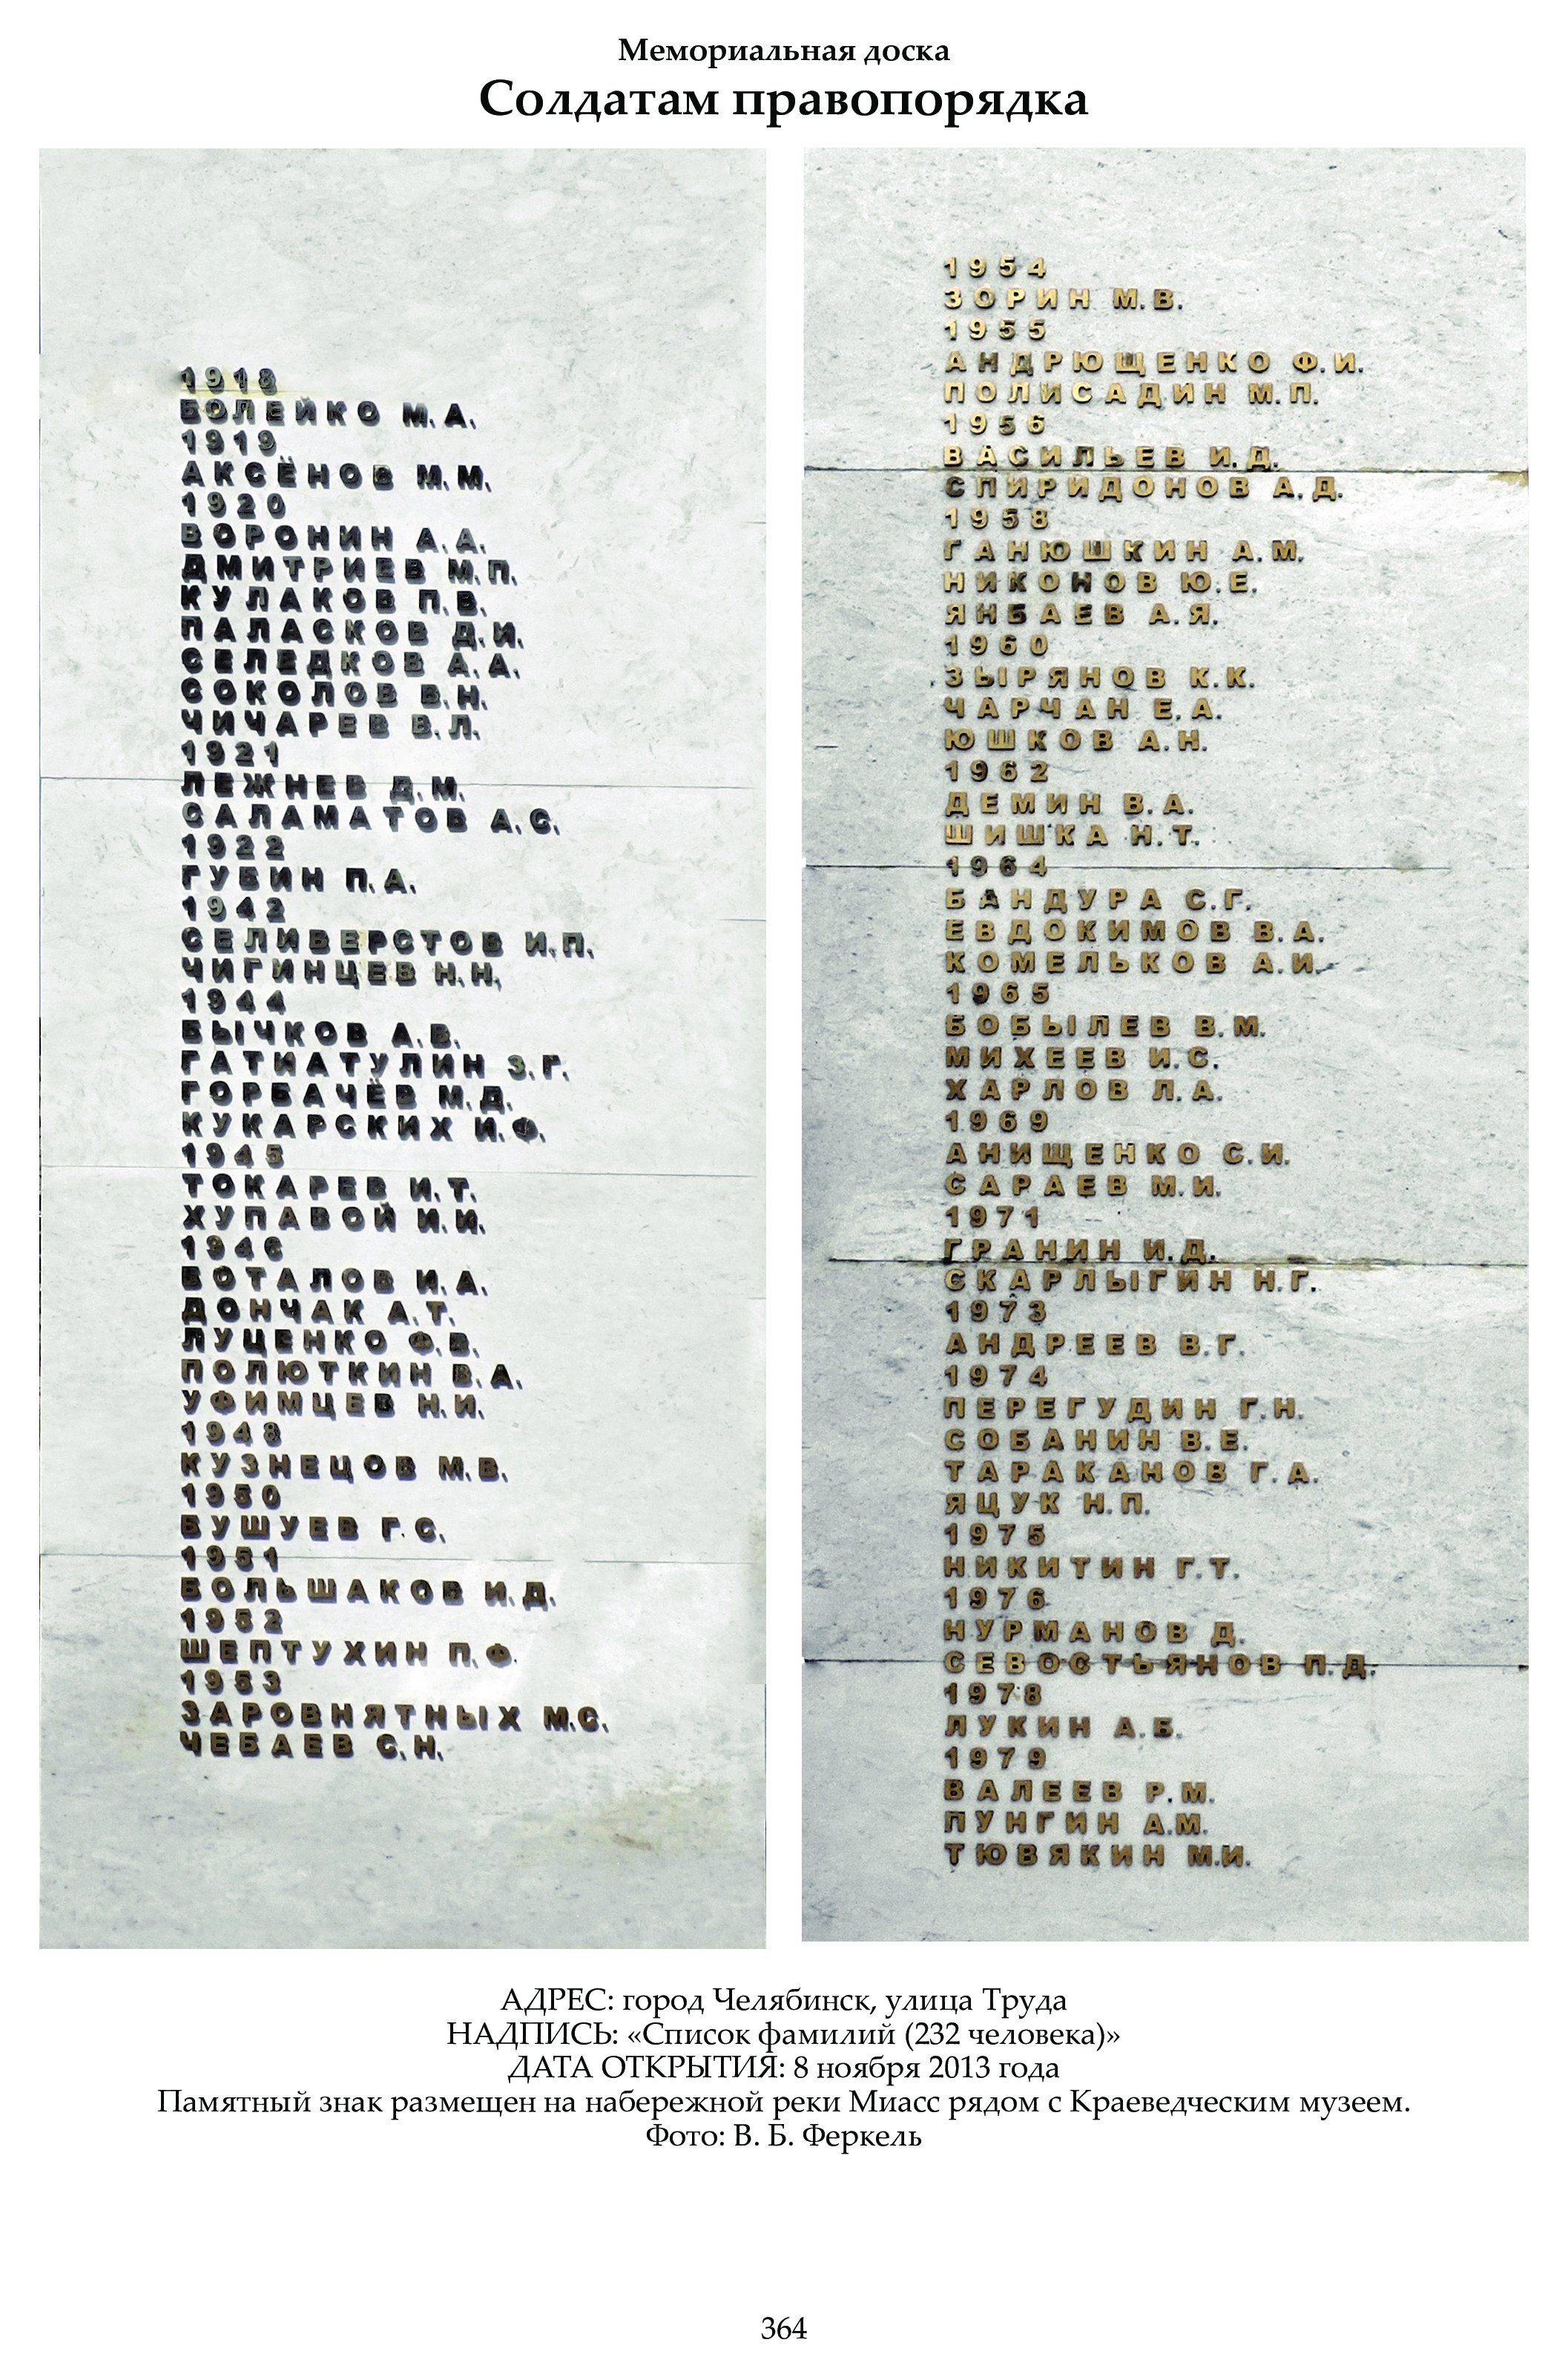 Мемориальная доска
Солдатам правопорядка
1918
БОЛЕЙКО М.А.
1919
АКСЁНОВ М.М.
1920
ВОРОНИН А.А.
ДМИТРИЕВ М.П.
КУЛАКОВ П.В.
ПАЛАСКОВ Д.И.
СЕЛЕДКОВ А.А.
СОКОЛОВ В.Н.
ЧИЧАРЕВ В.Л.
1921
ЛЕЖНЕВ Д.М.
САЛАМАТОВ А.С.
1922
ГУБИН П.А.
1942
СЕЛИВЕРСТОВ И.П.
ЧИГИНЦЕВ Н.Н.
1944
БЫЧКОВ А.В.
ГАТИАТУЛИН З.Г.
ГОРБАЧЁВ М.Д.
КУКАРСКИХ И.Ф.
1945
ТОКАРЕВ И.Т.
ХУПАВОЙ И.И.
1946
БОТАЛОВ И.А.
ДОНЧАК А.Т.
ЛУЦЕНКО Ф.В.
ПОЛЮТКИН В.А.
УФИМЦЕВ Н.И.
1948
КУЗНЕЦОВ М.В.
1950
БУШУЕВ Г.С.
1951
БОЛЬШАКОВ И.Д.
1952
ШЕПТУХИН П.Ф.
1953
ЗАРОВНЯТНЫХ М.С.
ЧЕБАЕВ С.Н.
1954
ЗОРИН М.В.
1955
АНДРЮЩЕНКО Ф.И.
ПОЛИСАДИН М.П.
1956
ВАСИЛЬЕВ И.Д.
СПИРИДОНОВ А.Д.
1958
ГАНЮШКИН А.М.
НИКОНОВ Ю.Е.
ЯНБАЕВ А.Я.
1960
ЗЫРЯНОВ К.К.
ЧАРЧАН Е.А.
ЮШКОВ А.Н.
1962
ДЕМИН В.А.
ШИШКА Н.Т.
1964
БАНДУРА С.Г.
ЕВДОКИМОВ В.А.
КОМЕЛЬКОВ А.И.
1965
БОБЫЛЕВ В.М.
МИХЕЕВ И.С.
ХАРЛОВ Л.А.
1969
АНИЩЕНКО С.И.
САРАЕВ М.И.
1971
ГРАНИН И.Д.
СКАРЛЫГИН Н.Г.
1973
АНДРЕЕВ В.Г.
1974
ПЕРЕГУДИН Г.Н.
СОБАНИН В.Е.
ТАРАКАНОВ Г.А.
ЯЦУК Н.П.
1975
НИКИТИН Г.Т.
1976
НУРМАНОВ Д.
СЕВОСТЬЯНОВ П.Д.
1978
ЛУКИН А.Б.
1979
ВАЛЕЕВ Р.М.
ПУНГИН А.М.
ТЮВЯКИН М.И.
АДРЕС: город Челябинск, улица Труда
НАДПИСЬ: «Список фамилий (232 человека)»
ДАТА ОТКРЫТИЯ: 8 ноября 2013 года
Памятный знак размещен на набережной реки Миасс рядом с Краеведческим музеем.
Фото: В. Б. Феркель
364